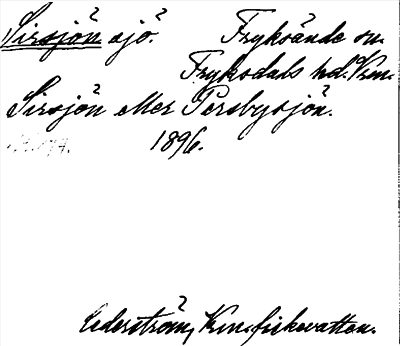 Sirsjön sjö. Fryksände sn.
Fryksdals hd. Vrm.
Sirsjön eller Persbysjön.
1896.
Cederström, Vrm. fiskevatten.